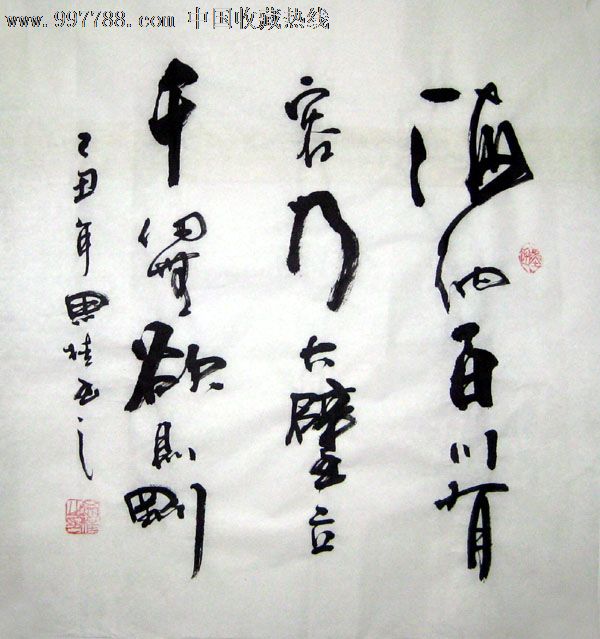 www.997788.com 中国收藏热线
海纳百川有
容乃大壁立
千仞無欲則剛
己丑年 桂书之